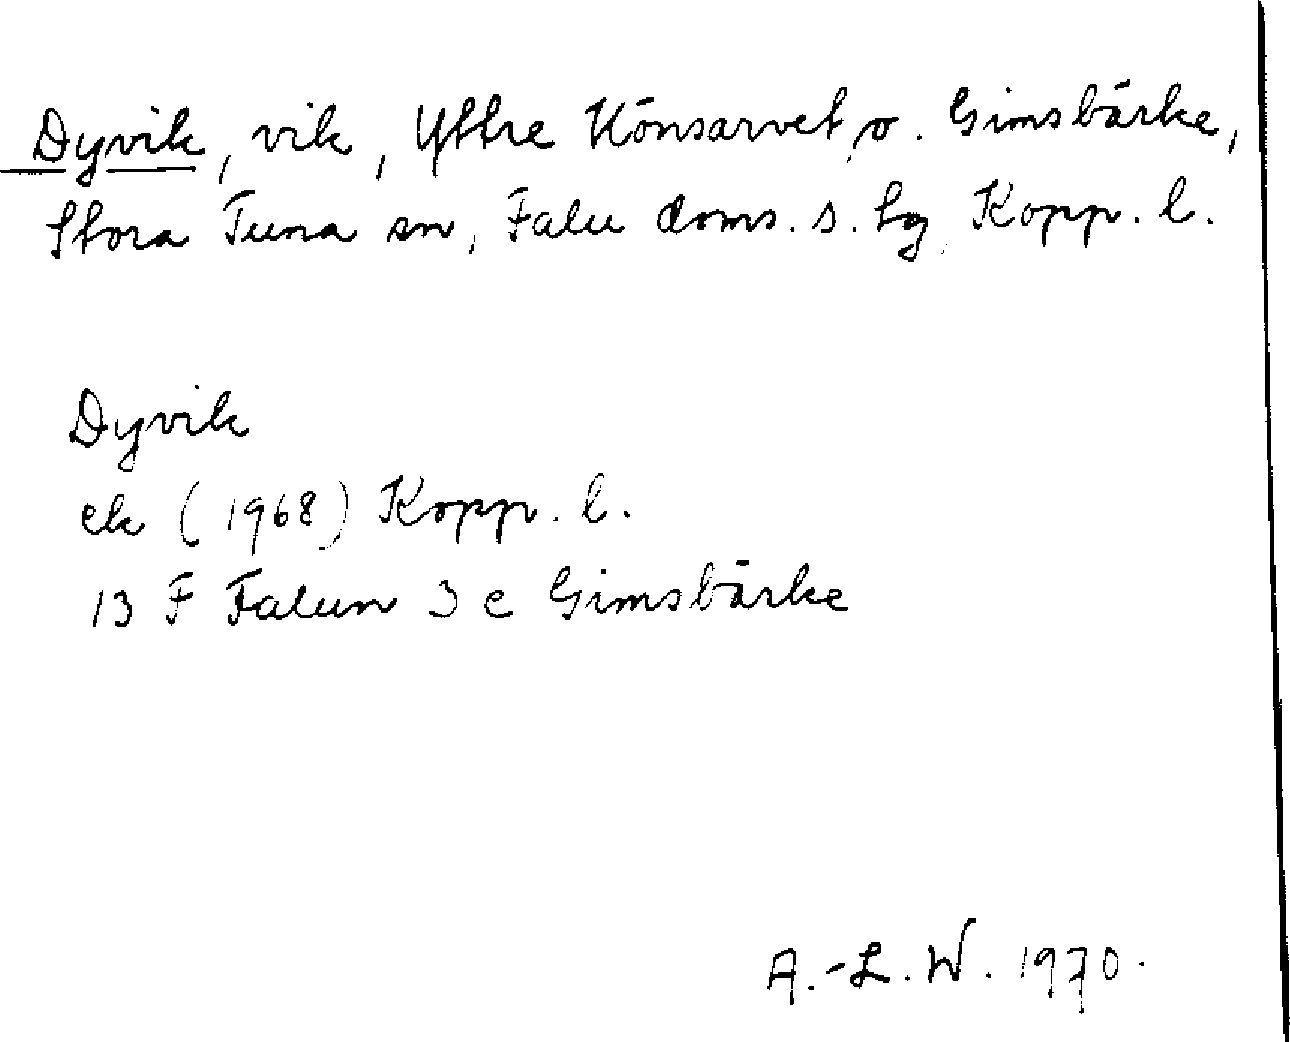 Dyvik, vik, Yttre Könsarvet, o. Gimsbärke,
Stora Tuna sn, Falu doms. s. tg, Kopp. l.
Dyvik
ek (1968) Kopp. l.
13 F Falun 3 e Gimsbärke
A.-L. W. 1970.